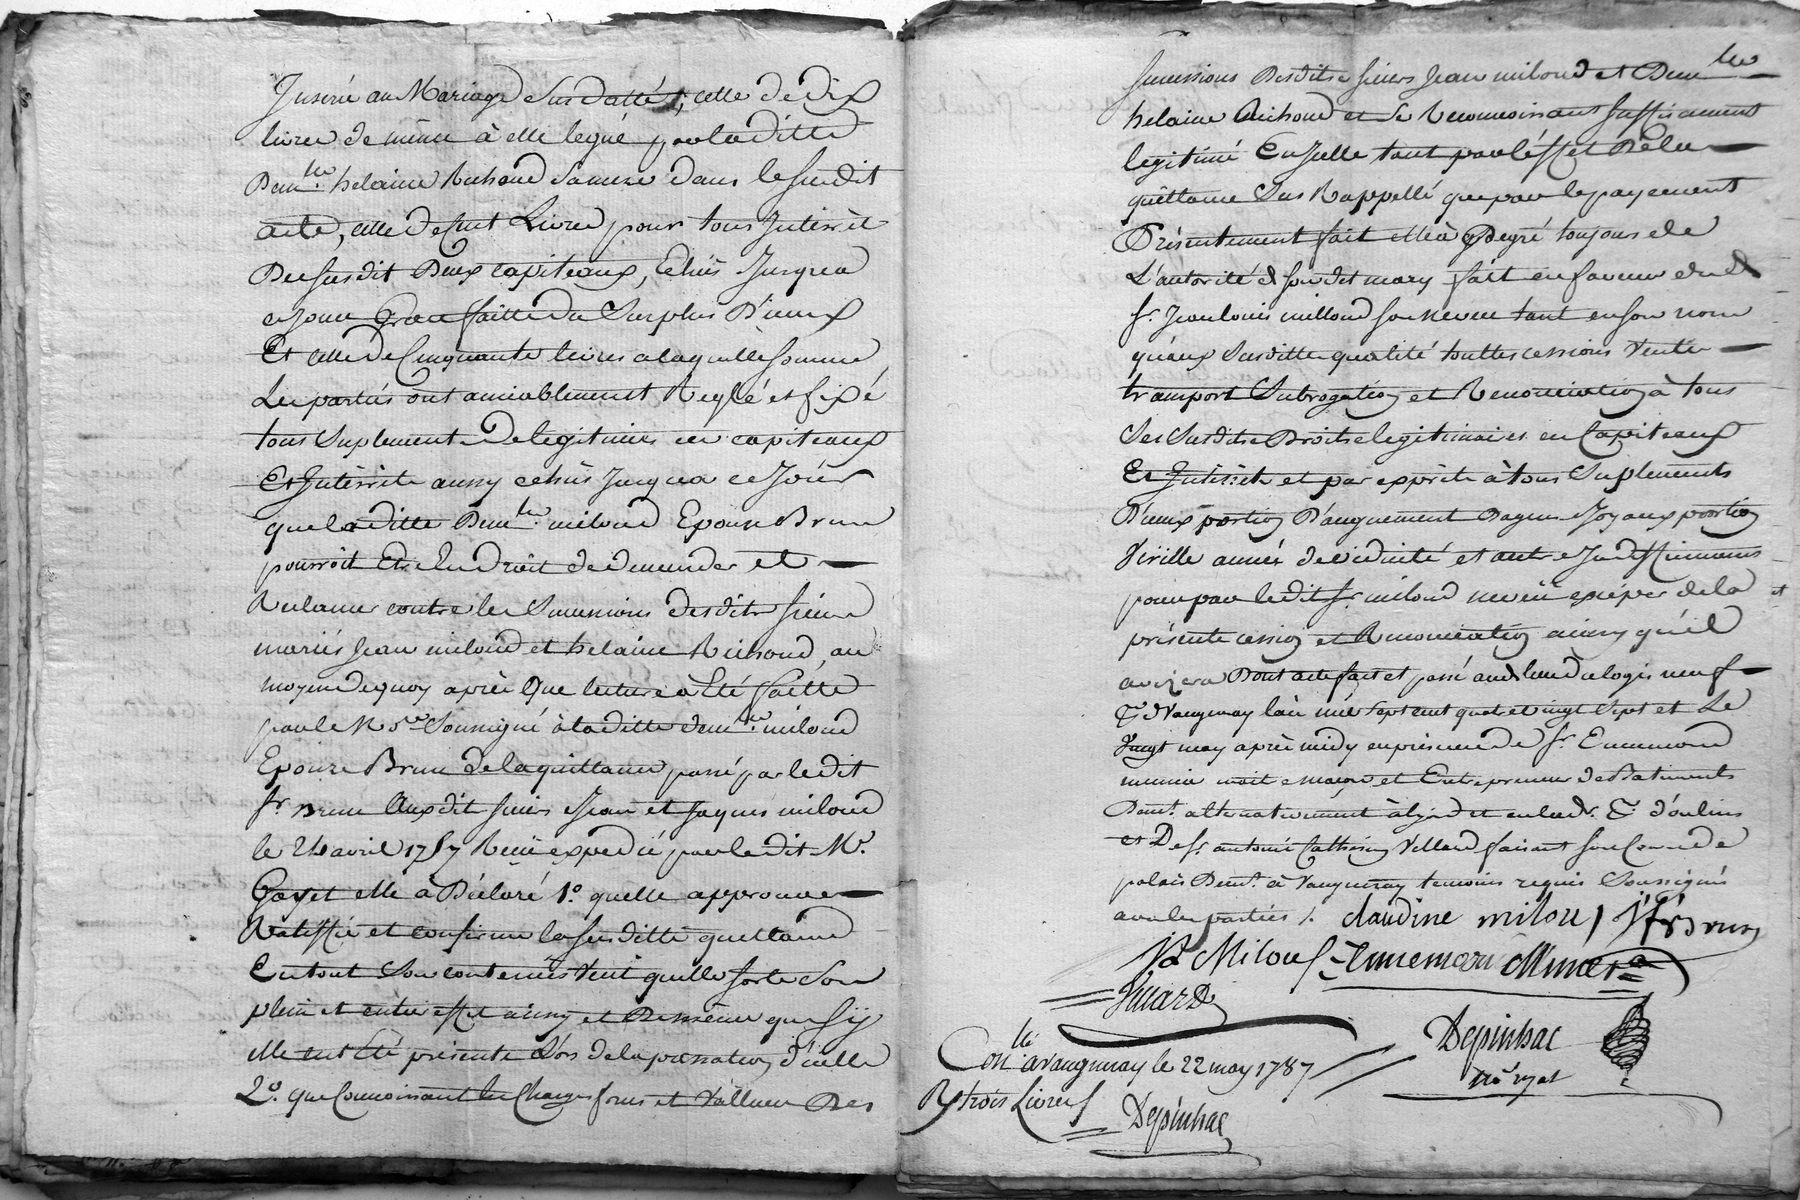 Inseré au Mariage Susdatté, celle de dix
livres de même à elle legué par laditte
Dem.lle helaine Richoud Sa mere dans le susdit
acte, celle de Cent Livres pour tous Interrèt
Des susdit Deux capiteaux, Echus Jusqu'a
ce Jour Grace faitte du Surplus D'iceux
Et celle de Cinquante livres a laquelle somme
Les partiés ont amiablement Reglé et fixé
tous Suplement De legitimes en capiteaux
Et Intérrèts aussy echus Jusqua ce Jour
que laditte Dem.lle miloud Epouse Brun
pourroit Etre En Droit de demander et
Reclamer contre les Successions desdits sieur
mariés Jean miloud et helaine Richoud, au
moyen de quoy après Que lecture a Eté faitte
par le N.re Soussigné à laditte dem.lle miloud
Epouze Brun de la quittance passé par le dit
sr. Brun Aux dit sieurs Jean et Jaques miloud
le 24 avril 1757 Reçu expedié par le dit M.e
Gayet elle à Déclaré 1.o quelle approuve
Ratiffie et confirme la susditte quittance
En tout Son contenu Veut quelle sorte Son
plein et entier effet ainsy et De même que Sy
elle eut Eté présente Lors de la passation d'icelle
2.o que Connoissant les Charges forces et Valleur Des
successions Desdits sieurs Jean miloud et Dem.lle
helaine Richoud et Se Reconnoissant suffisament
legitimé En Icelle tant par l'éffet De la
quittance Sus Rappellé que par le payement
Présentement fait elle à De gré toujours de
L'autorité de son dit mary fait en faveur du d.
sr. Jean louis milloud son neveu tant en son nom
qu'aux Susditte qualité touttes cessions Vente
transport Subrogation et Renonciation à tous
Ses Susdits Droits legitimaires en Capiteaux
Et Intérrèts et par exprès à tous Suplements
D'iceux portion D'augment Bagues Joyaux portion
Virille année de viduité et autres Indéffiniment
pour par le dit sr. miloud neveu exciper de la
présente cession et Renonciation ainsy qu'il
avizera Dont acte fait et passé au d. lieu du logis neuf
P.sse d'Vaugneray l'an mil sept cent quatre vingt Sept et Le
Vingt may après midy en présence de sr. Ennemond
munier mait maçon et Entrepreneur de Batiments
Dem.t alternativement à lyon et en lad. P.sse d'oulins
et De sr. antoine Catherin Villard faisant son Cours de
palais Dem.t à Vaugneray temoins requis Soussignés
avec les parties /. claudine milou J f Brun
J L Milou Ennemon Munier
Villard
Con.lle a vaugneray le 22 may 1787
R. trois Livres
Depinhac
Depinhac
no.re royal